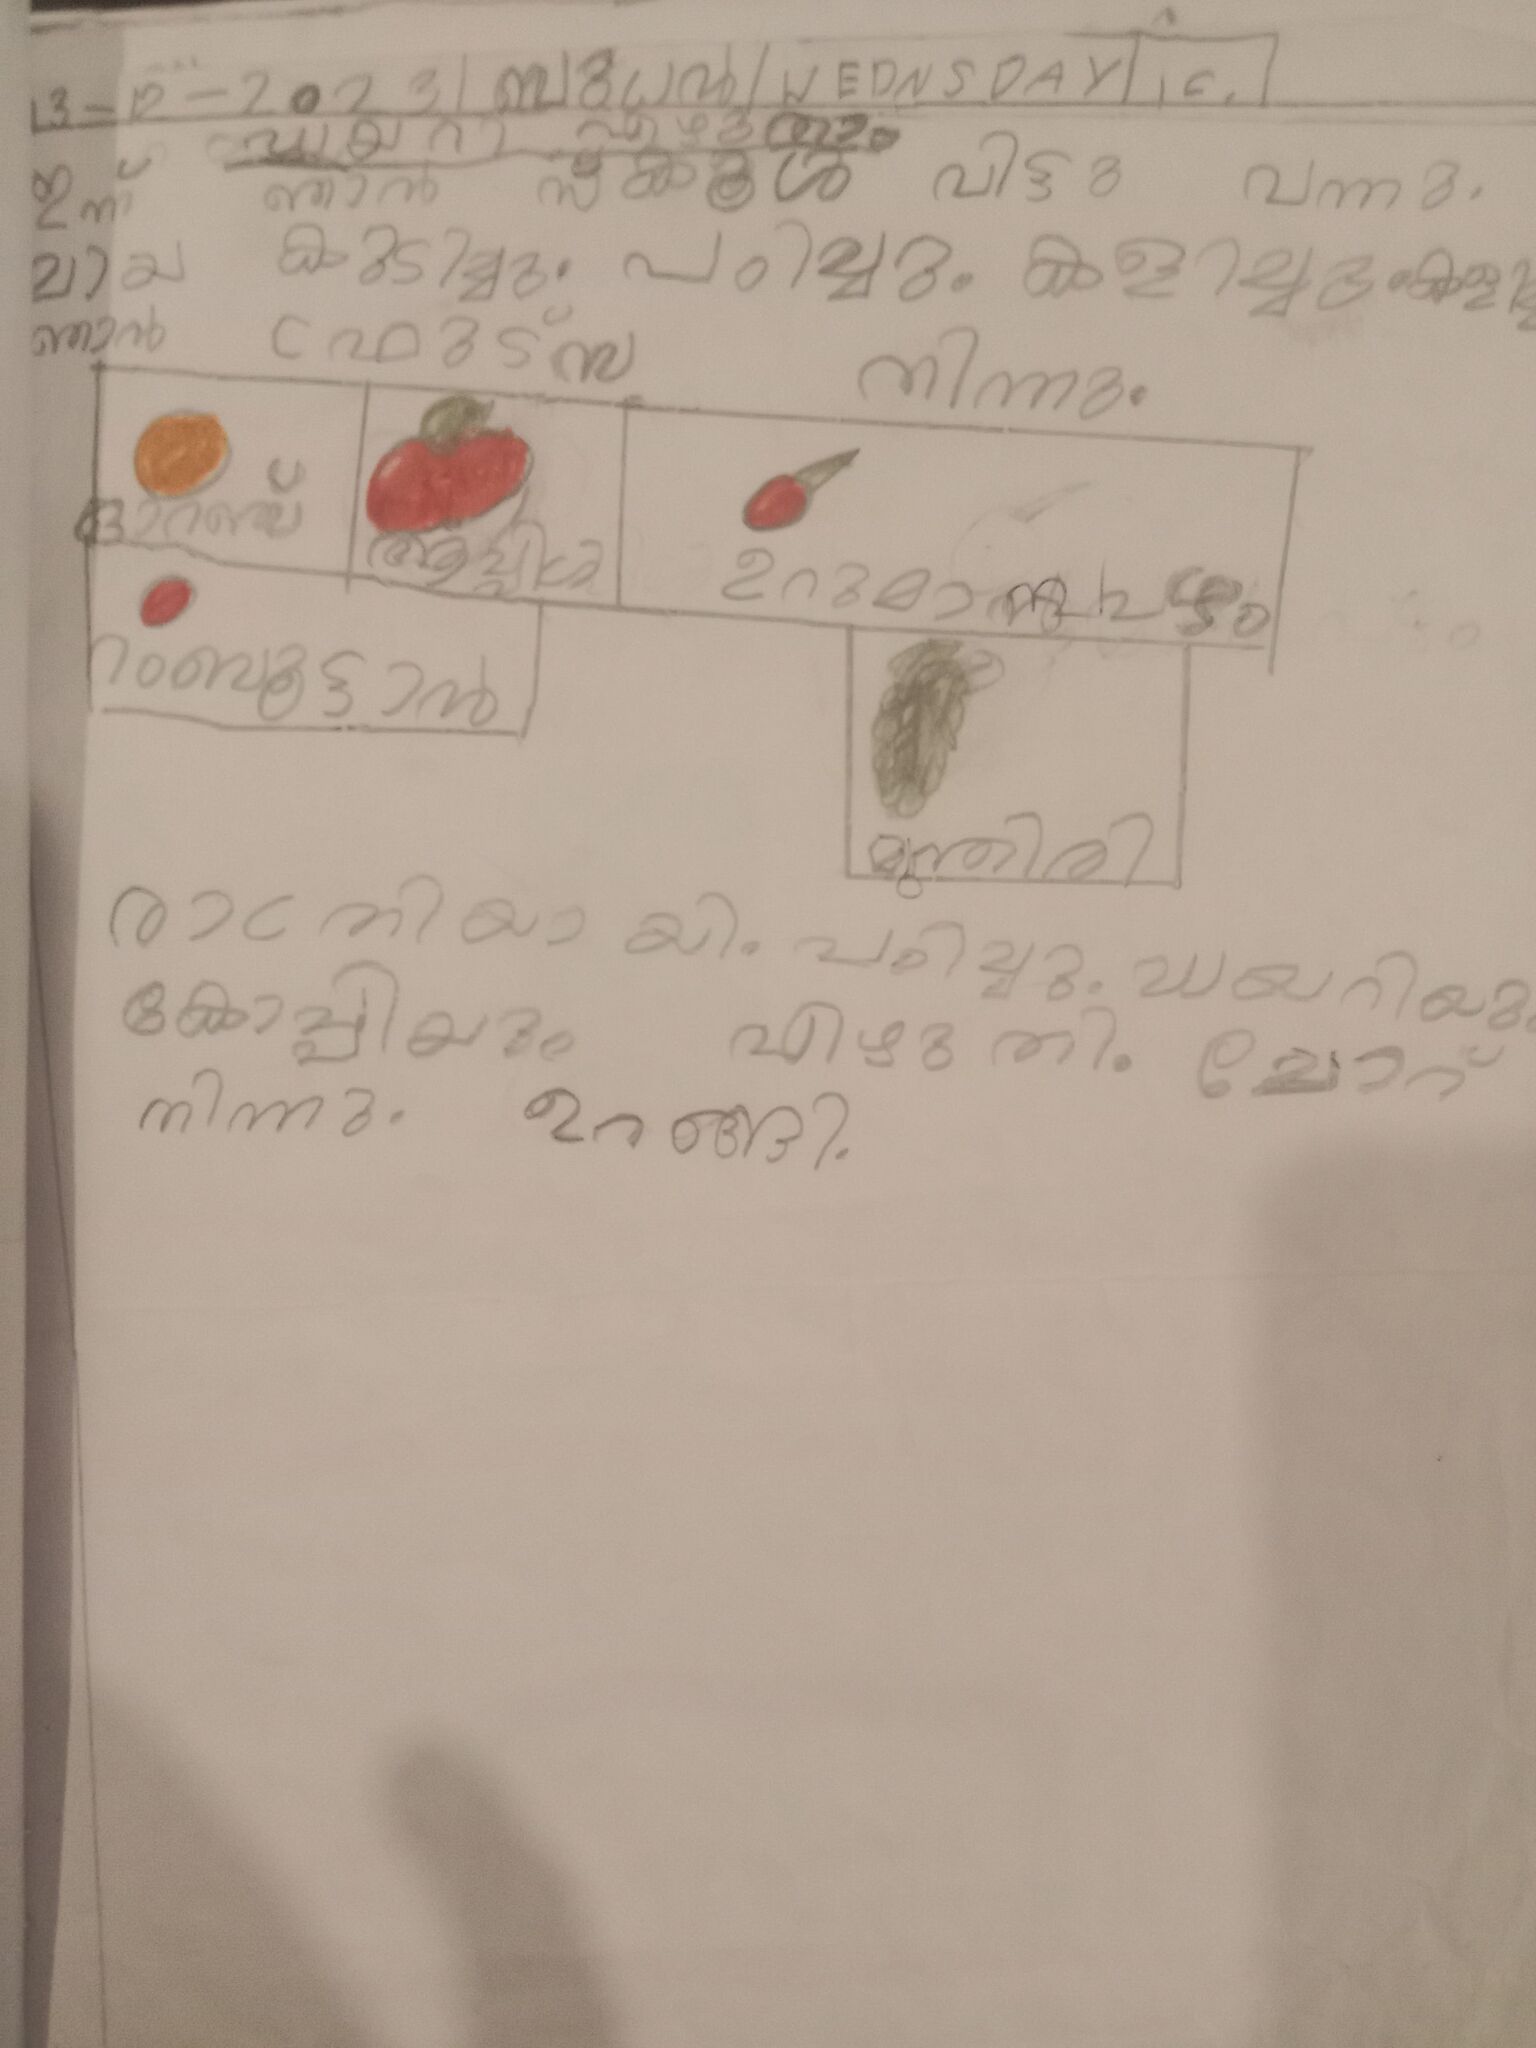 13-12-2023/ബുധൻ/WEDNSDAY
ഡയറി എഴുതാം
ഇന്ന് ഞാൻ സ്കൂൾ വിട്ടു വന്നു.
ചായ കുടിച്ചു. പഠിച്ചു. കളിച്ചു.
ഞാൻ ഫ്രുട്സ് തിന്നു.
ഓറഞ്ച് ആപ്പിൾ ഉറുമാമ്പഴം
റംബുട്ടാൻ
മുന്തിരി
രാത്രിയായി. പഠിച്ചു. ഡയറിയും
കോപ്പിയും എഴുതി. ചോറ്
തിന്നു. ഉറങ്ങി.